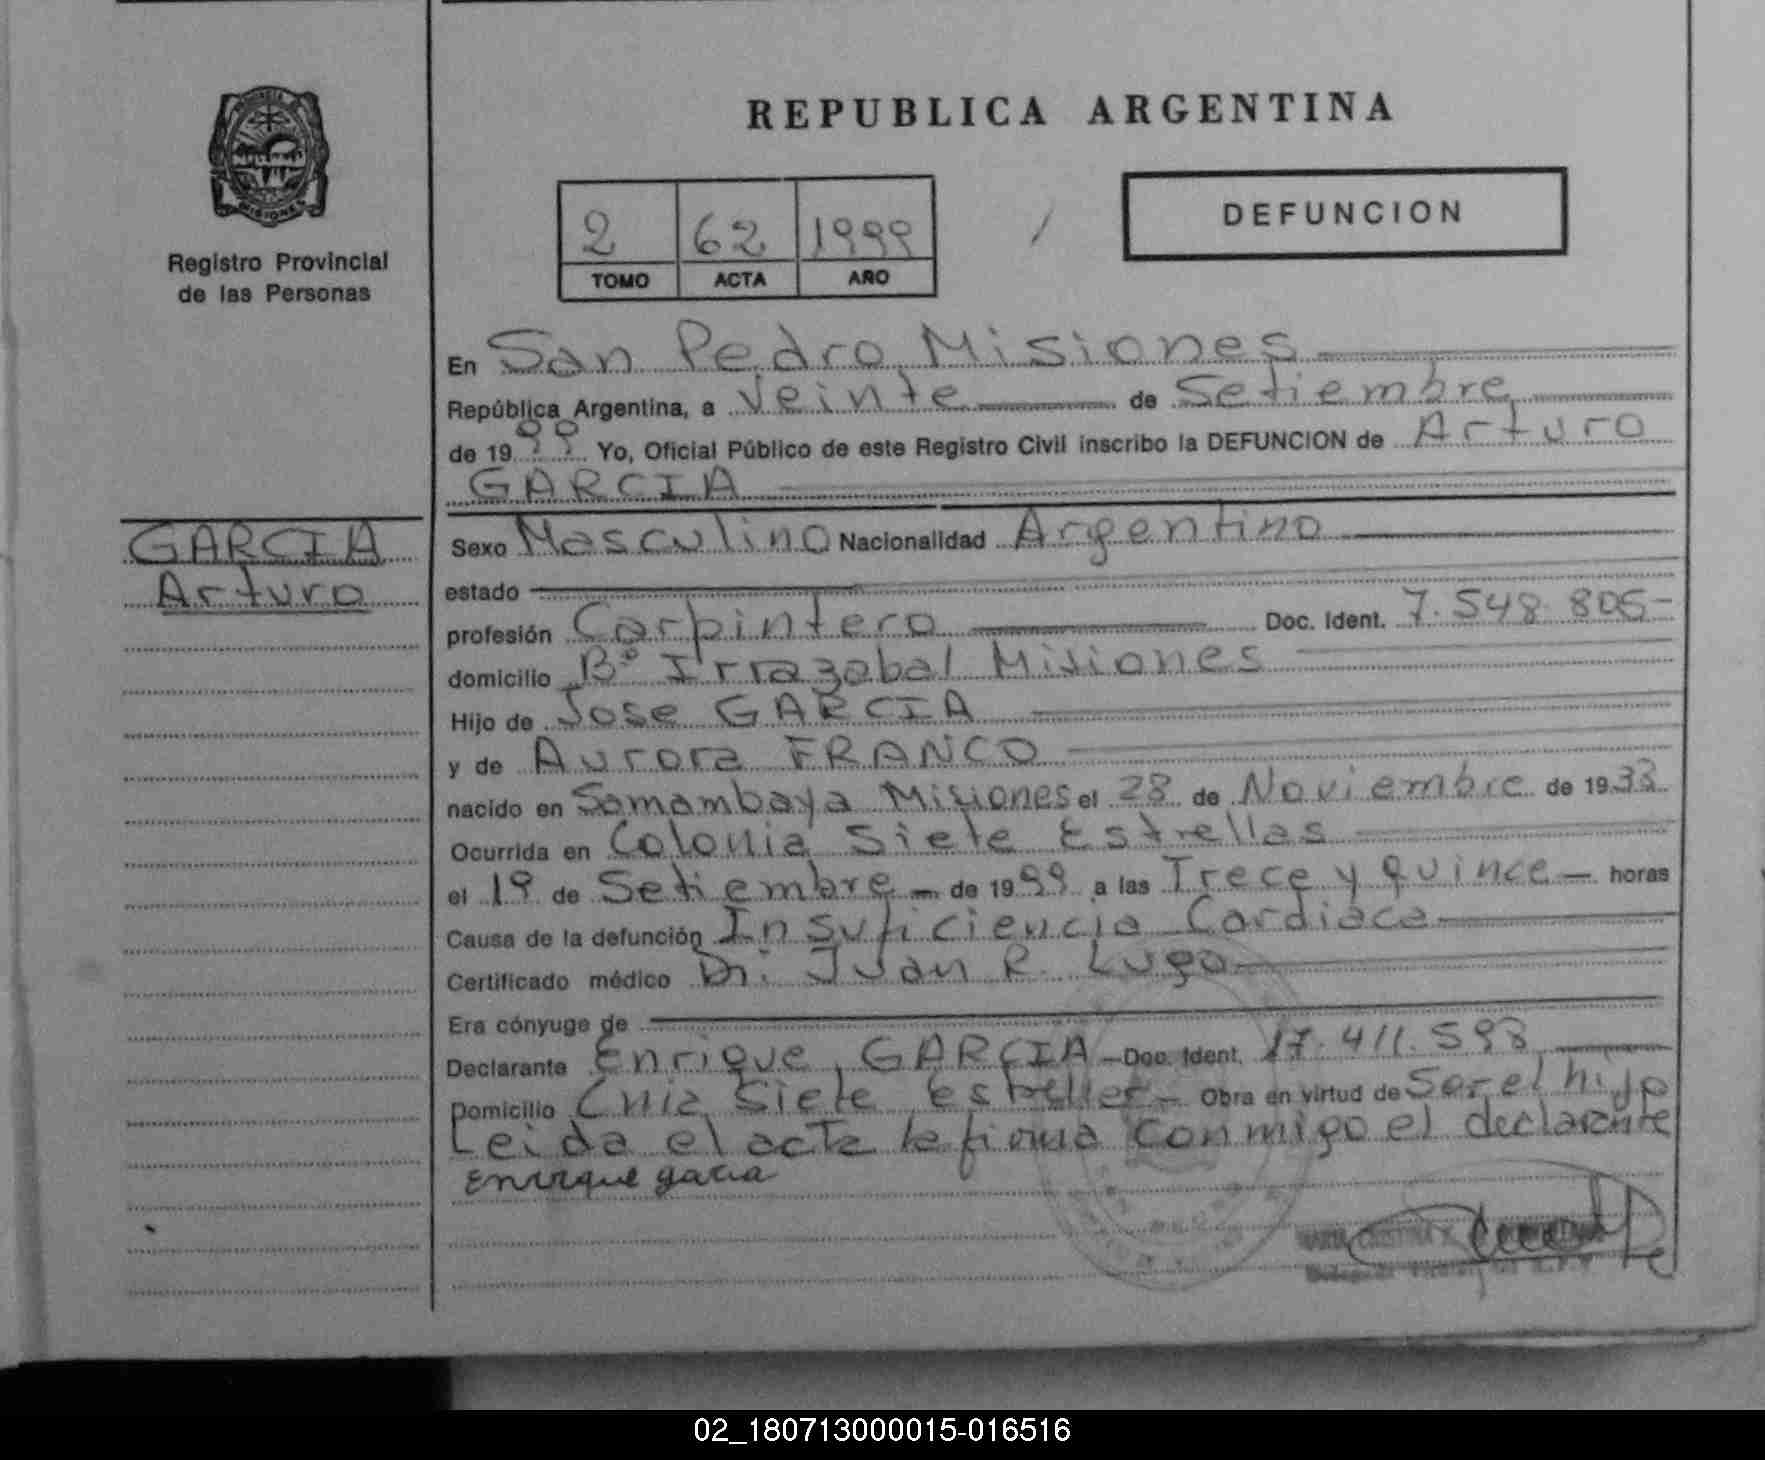 REPUBLICA ARGENTINA
Registro Provincial
de las Personas
2 62 1999
TOMO ACTA AÑO
DEFUNCION
En San Pedro Misiones
República Argentina, a veinte de Setiembre
de 1999 Yo, Oficial Público de este Registro Civil inscribo la DEFUNCION de Arturo
GARCIA
GARCIA
Arturo
Sexo Masculino Nacionalidad Argentino
estado
profesión Carpintero Doc. Ident. 7.548.805-
domicilio Bº Irrazabal Misiones
Hijo de Jose GARCIA
y de Aurora FRANCO
nacido en Samambaya Misiones el 28 de Noviembre de 1933
Ocurrida en Colonia Siete Estrellas
el 19 de Setiembre de 1999 a las Trece y quince horas
Causa de la defunción Insuficiencia Cardiaca
Certificado médico Dr. Juan R. Lugo
Era cónyuge de
Declarante Enrique GARCIA Doc. Ident. 17.411.593
Domicilio Cnia Siete Estrellas Obra en virtud de Ser el hijo
Leida el acta la firma conmigo el declarante
Enrique garcia
02_180713000015-016516